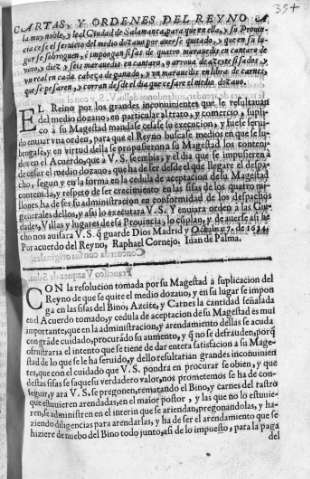 354
CARTAS, Y ORDENES DEL REYNO A
la muy noble, y leal Ciudad de Salamanca para que en ella, y su Prouin-
cia cesse el seruicio del medio dozauo por auerse quitado, y que en su lu-
gar se subroguen, è impongan sisas de quatro marauedis en cantara de
vino, y diez y seis marauedis en cantara, o arroua de azeite sisadas, y
vn real en cada cabeça de ganado, y vn marauedi en libra de carne,
que se pesaren, y corran desde el dia que cesare el medio dozauo.
EL Reino por los grandes inconuinientes que le resultauan
del medio dozauo, en particular al trato, y comercio, suplicò
a su Magestad mandasse cesasse la execucion, y fuele seruido
enuiar vna orden, para que el Reyno buscasse medios en que se su-
brogasse, y en virtud della se propusieron a su Magestad los conteni-
dos en el Acuerdo, que a V. S. se embia, y el dia que se impusieren à
de cesar el medio dozauo, que ha de ser desde el que llegare el despa-
cho, segun y en la forma en la cedula de aceptacion de su Magestad
contenida, y respeto de ser crecimiento en las sisas de los quatro mi-
llones ha de ser su administracion en conformidad de los despachos
generales dellos, y assi lo executarà V. S. Y enuiarà orden à las Ciu-
dades, Villas y lugares de su Prouincia, lo cumplan, y de auerse assi he-
cho nos auisarà V. S. q̃ guarde Dios Madrid y Octubre 7. de 1634.
Por acuerdo del Reyno, Raphael Cornejo. Iuan de Palma.
CON la resolucion tomada por su Magestad a suplicacion del
Reyno de que se quite el medio dozauo, y en su lugar se impon-
ga en las sisas del Bino, Azeite, y Carnes la cantidad señalada
en el Acuerdo tomado, y cedula de aceptacion de su Magestad es mui
importante, que en la administracion, y arrendamiento dellas se acuda
con grãde cuidado, procurãdo su aumento, y q̃ no se defrauden, porq̃
se frustraria el intento que se tiene de dar entera satisfacion a su Mage-
stad de lo que se le ha seruido, y dello resultarian grandes inconuinien
tes, que con el cuidado que V. S. pondrà en procurar se obien, y que
destas sisas se saque su verdadero valor, nos prometemos se ha de con-
seguir, y ara V. S. se pregonen, rematando el Bino, y carnes del rastro
que estuuieren arrendadas, en el maior postor, y las que no lo estuuie-
ren, se administren en el interin que se ariendan, pregonandolas, y ha-
ziendo diligencias para arendarlas, y ha de ser el arendamiento que se
hiziere de nuebo del Bino todo junto, assi de lo impuesto, para la paga
del